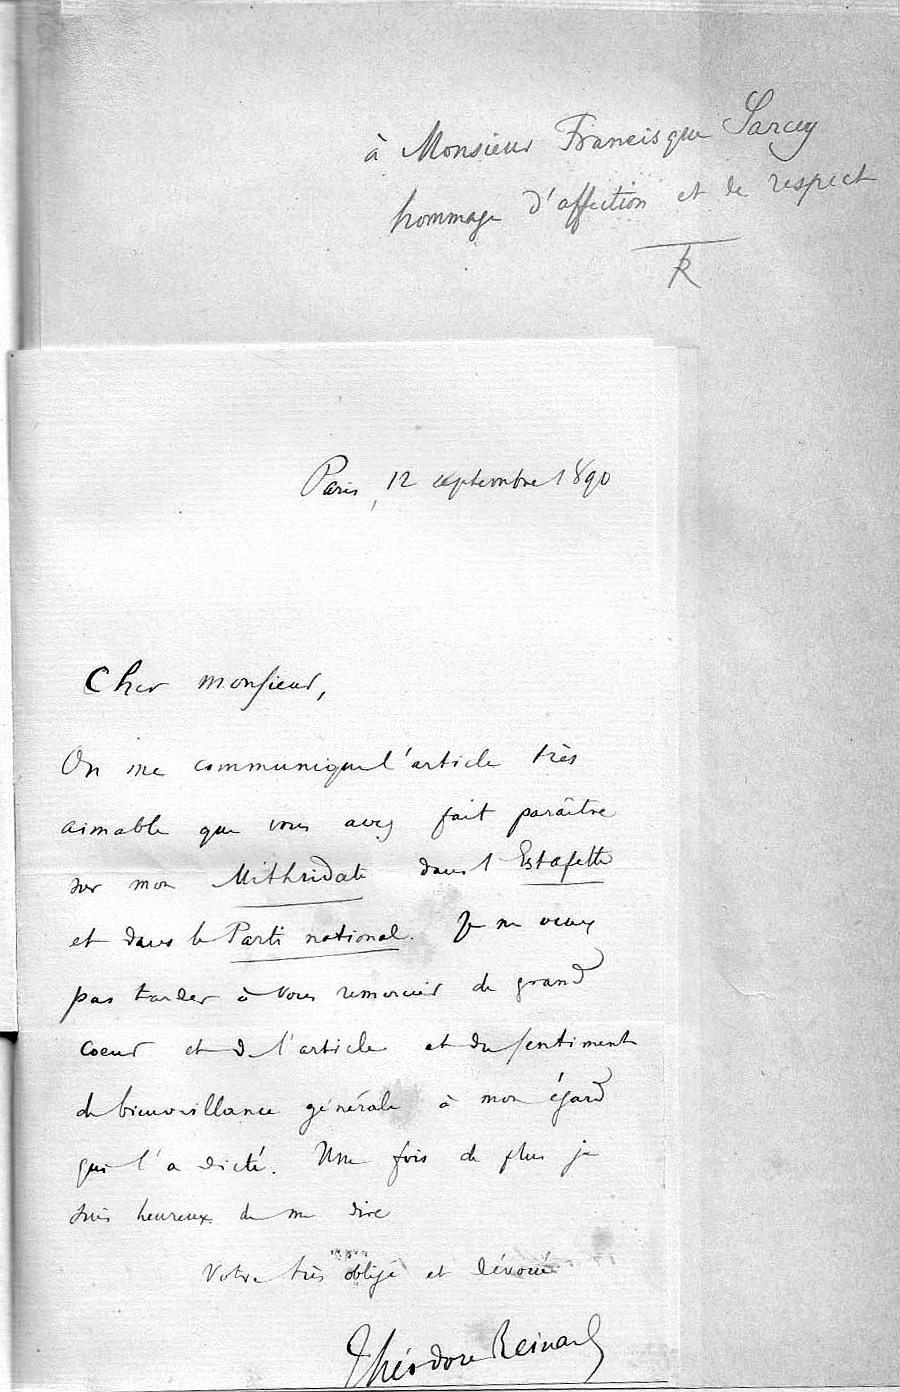 à Monsieur Francisque Sarcey
hommage d'affection et de respect
TR
Paris, 12 septembre 1890
Cher monsieur,
On me communique l'article très
aimable que vous avez fait paraître
sur mon Mithridate dans l'Estafette
et dans le Parti national. Je ne veux
pas tarder à vous remercier de grand
coeur et de l'article et du sentiment
de bienveillance générale à mon égard
qui l'a dicté. Une fois de plus je
suis heureux de me dire
Votre très obligé et dévoué
Théodore Reinach